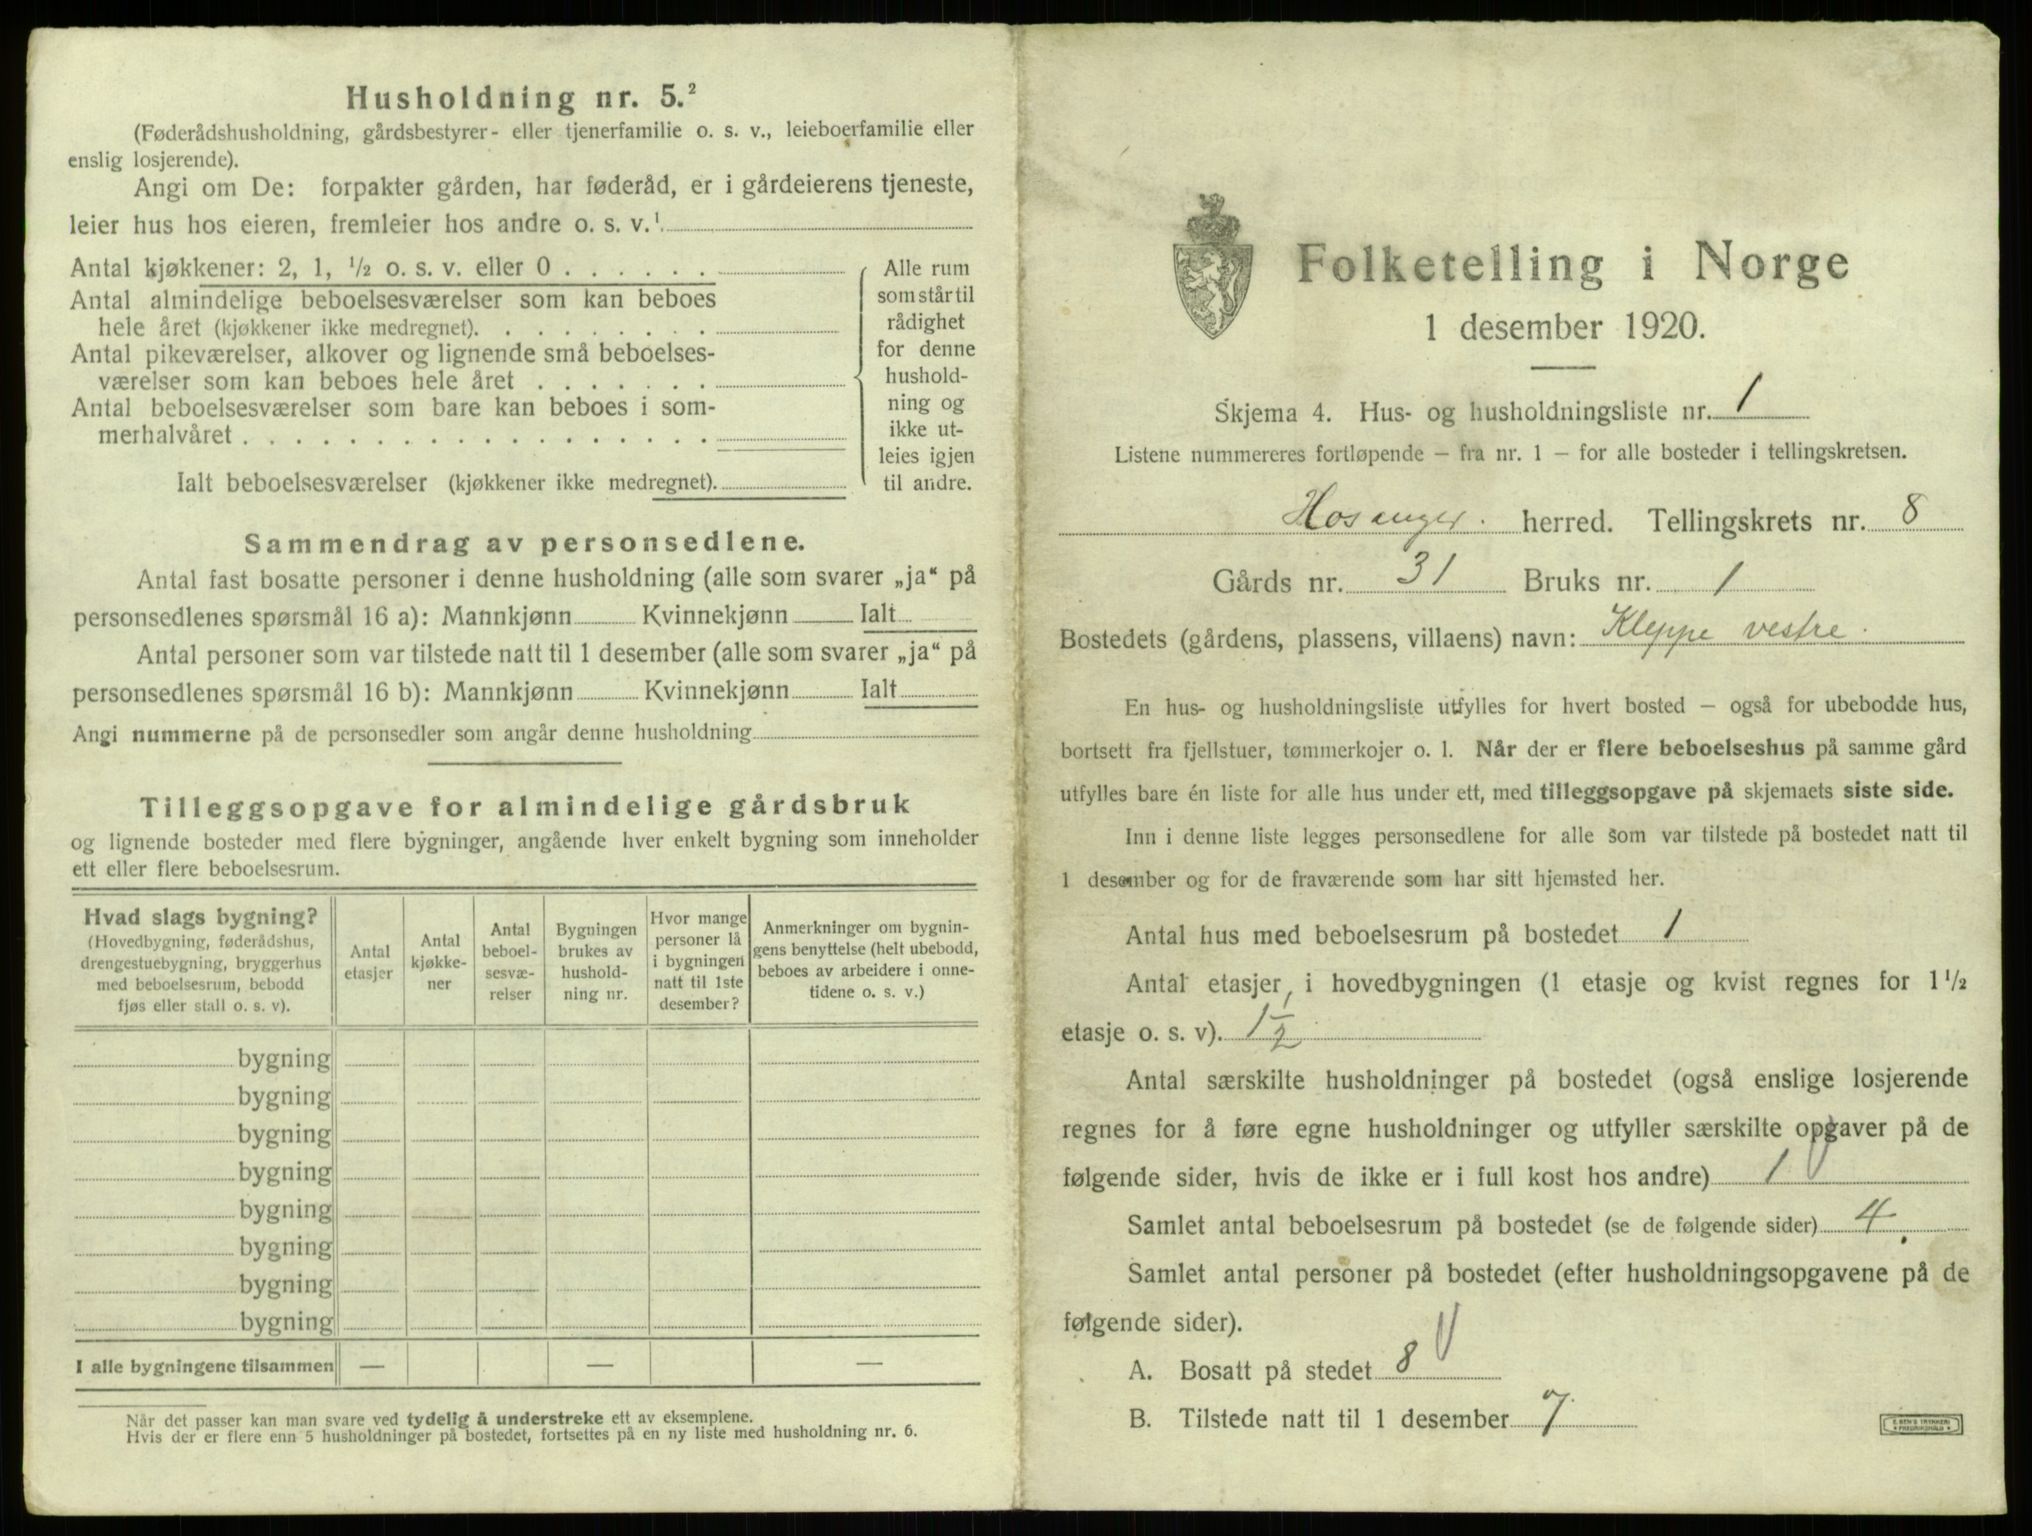 Husholdning nr. 5.²
(Føderådshusholdning, gårdsbestyrer- eller tjenerfamilie o. s. v., leieboerfamilie eller
enslig losjerende).
Angi om De: forpakter gården, har føderåd, er i gårdeierens tjeneste,
leier hus hos eieren, fremleier hos andre o. s. v.¹
Antal kjøkkener: 2, 1, ½ o. s. v. eller 0 . . . . . .
Antal almindelige beboelsesværelser som kan beboes
hele året (kjøkkener ikke medregnet). . . . . . . . .
Antal pikeværelser, alkover og lignende små beboelses-
værelser som kan beboes hele året . . . . . . .
Antal beboelsesværelser som bare kan beboes i som-
merhalvåret . . . . . . . . . . . . . . . . . .
Ialt beboelsesværelser (kjøkkener ikke medregnet).
Alle rum
som står til
rådighet
for denne
hushold-
ning og
ikke ut-
leies igjen
til andre.
Sammendrag av personsedlene.
Antal fast bosatte personer i denne husholdning (alle som svarer „ja“ på
personsedlenes spørsmål 16 a): Mannkjønn Kvinnekjønn Ialt
Antal personer som var tilstede natt til 1 desember (alle som svarer „ja“ på
personsedlenes spørsmål 16 b): Mannkjønn Kvinnekjønn Ialt
Angi nummerne på de personsedler som angår denne husholdning
Tilleggsopgave for almindelige gårdsbruk
og lignende bosteder med flere bygninger, angående hver enkelt bygning som inneholder
ett eller flere beboelsesrum.
Hvad slags bygning?
(Hovedbygning, føderådshus,
drengestuebygning, bryggerhus
med beboelsesrum, bebodd
fjøs eller stall o. s. v).
Antal
etasjer
Antal
kjøkke-
ner
Antal
beboel-
sesvæ-
relser
Bygningen
brukes av
hushold-
ning nr.
Hvor mange
personer lå
i bygningen
natt til 1ste
desember?
Anmerkninger om bygnin-
gens benyttelse (helt ubebodd,
beboes av arbeidere i onne-
tidene o. s. v.)
bygning
bygning
bygning
bygning
bygning
bygning
bygning
bygning
I alle bygningene tilsammen — — —
Når det passer kan man svare ved tydelig å understreke ett av eksemplene.
Hvis der er flere enn 5 husholdninger på bostedet, fortsettes på en ny liste med husholdning nr. 6.
Folketelling i Norge
1 desember 1920.
Skjema 4. Hus- og husholdningsliste nr. 1
Listene nummereres fortløpende — fra nr. 1 — for alle bosteder i tellingskretsen.
Hosanger. herred. Tellingskrets nr. 8
Gårds nr. 31 Bruks nr. 1
Bostedets (gårdens, plassens, villaens) navn: Kleppe vestre.
En hus- og husholdningsliste utfylles for hvert bosted — også for ubebodde hus,
bortsett fra fjellstuer, tømmerkojer o. l. Når der er flere beboelseshus på samme gård
utfylles bare én liste for alle hus under ett, med tilleggsopgave på skjemaets siste side.
Inn i denne liste legges personsedlene for alle som var tilstede på bostedet natt til
1 desember og for de fraværende som har sitt hjemsted her.
Antal hus med beboelsesrum på bostedet 1
Antal etasjer i hovedbygningen (1 etasje og kvist regnes for 1 ½
etasje o. s. v). 1 ½
Antal særskilte husholdninger på bostedet (også enslige losjerende
regnes for å føre egne husholdninger og utfyller særskilte opgaver på de
følgende sider, hvis de ikke er i full kost hos andre) 1
Samlet antal beboelsesrum på bostedet (se de følgende sider) 4.
Samlet antal personer på bostedet (efter husholdningsopgavene på de
følgende sider).
A. Bosatt på stedet 8
B. Tilstede natt til 1 desember 7